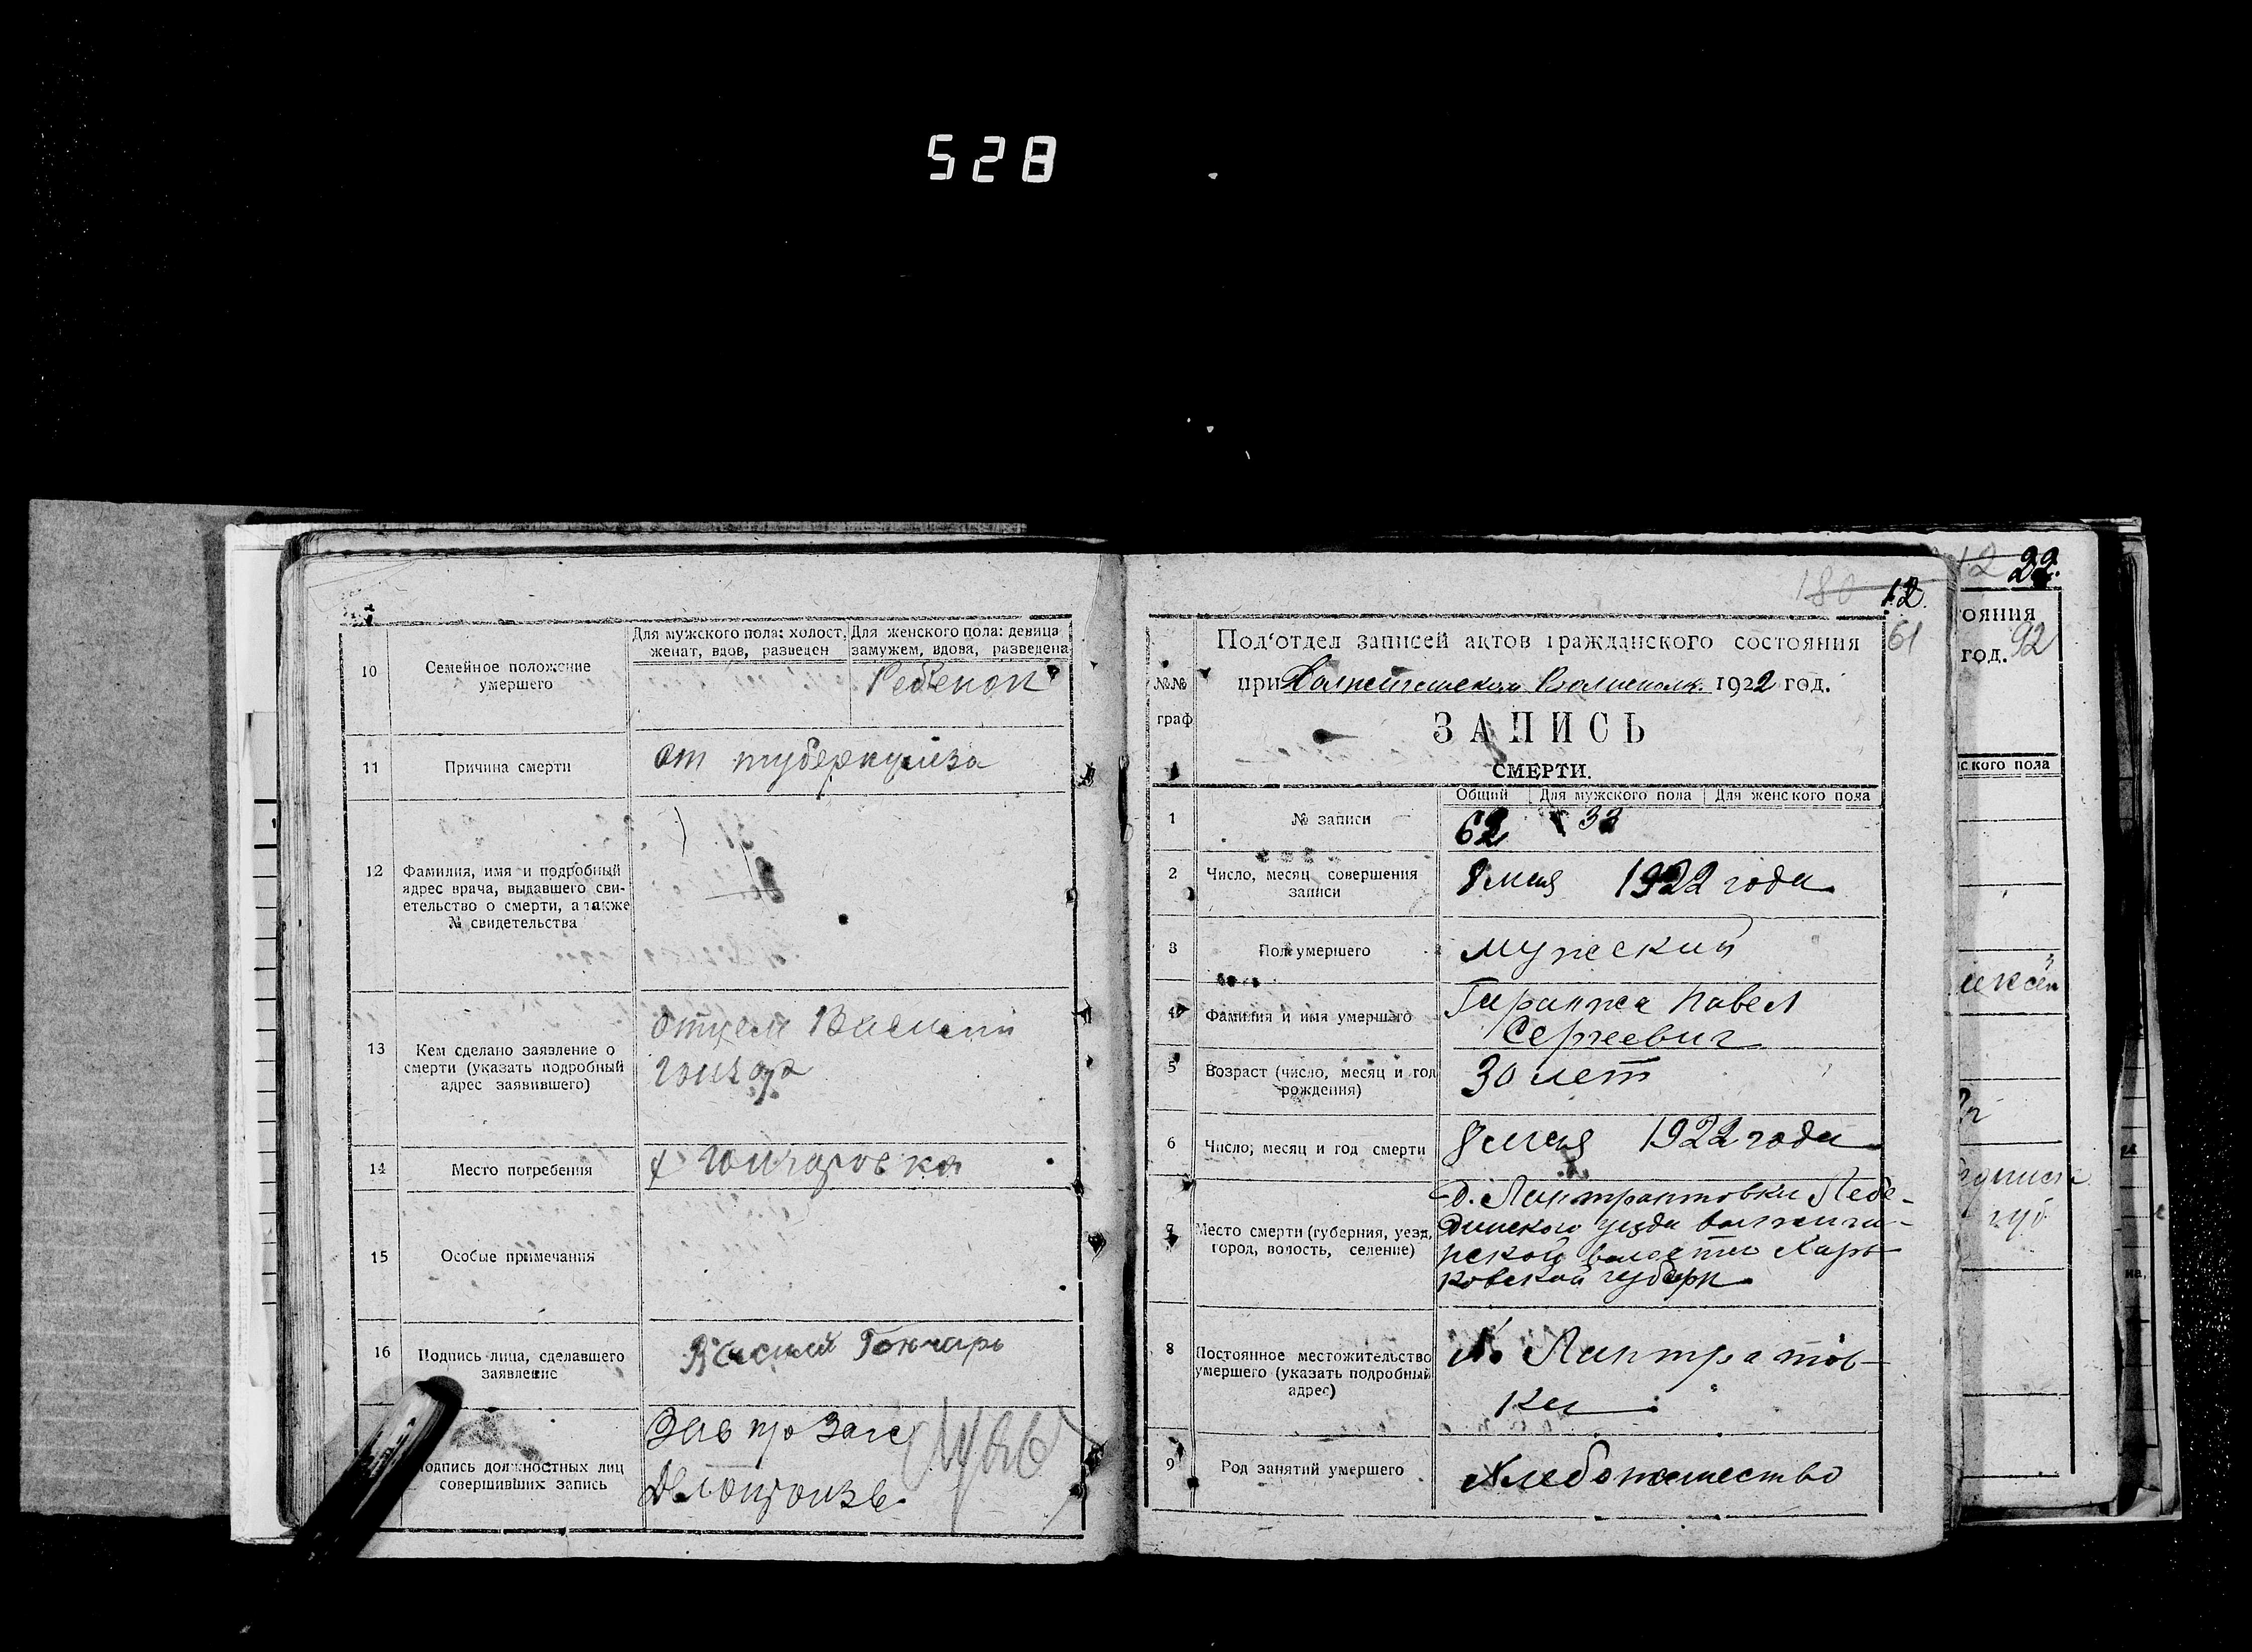 528
10
Семейное положение
умершего
Для мужского пола: холост, женат, вдов, разведен
Для женского пола: девица замужем, вдова, разведена
Ребенок
11
Причина смерти
от туберкулиза
12
Фамилия, имя и подробный
адрес врача, выдавшего сви-
етельство о смерти, а также
№ свидетельства
13
Кем сделано заявление о
смерти (указать подробный
адрес заявившего)
отцем Василий
гончар
14
Место погребения
х Гончаровка
15
Особые примечания
16
Подпись лица, сделавшего
заявление
Василий Гончарь
одпись должностных лиц
совершивших запись
Зав про Загс
Делопроизв.
180 12.
61
Под'отдел записей актов гражданского состояния
при 1922 год.
№№
граф
ЗАПИСЬ
СМЕРТИ.
Общий Для мужского пола Для женского пола
1
№ записи
62 33
2
Число, месяц совершения
записи
8 мая 1922 года
3
Пол умершего
мужский
4
Фамилия и имя умершего
Гиранжа Павел
Сергеевич
5
Возраст (число, месяц и год
рождения)
30 лет
6
Число, месяц и год смерти
8 мая 1922 года
7
Место смерти (губерния, уезд,
город, волость, селение)
Д. Лантратовки Лебе-
динского уезда
волости Харь
ковской губерн
8
Постоянное местожительство
умершего (указать подробный
адрес)
Лантратов-
ки
9
Род занятий умершего
Хлебопашество
12 22.
ояния
год. 92
ского пола